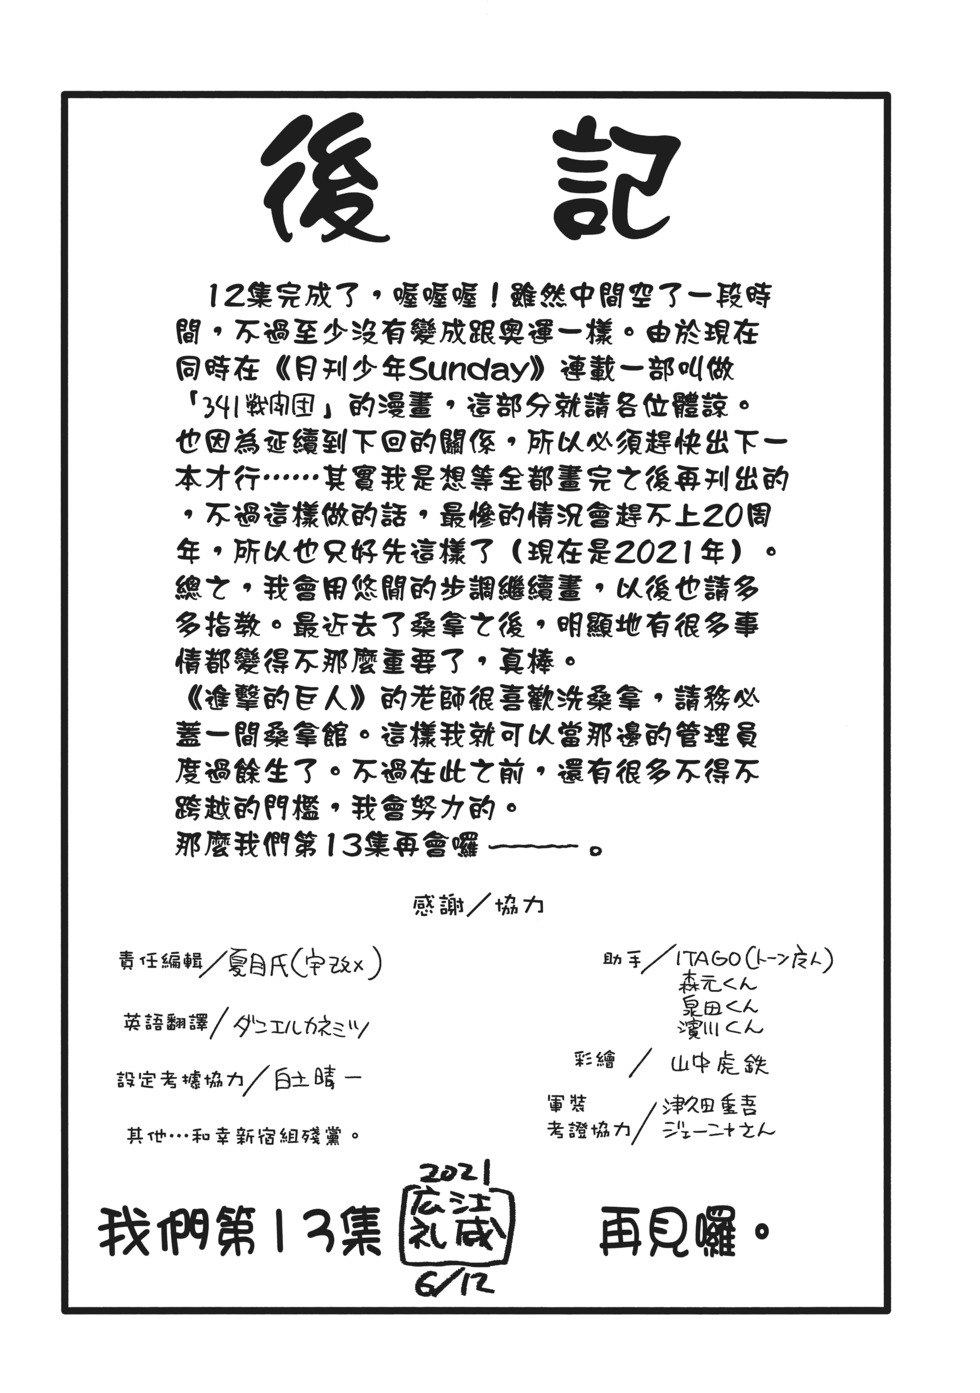 後記
12集完成了，喔喔喔！雖然中間空了一段時
間，不過至少沒有變成跟奧運一樣。由於現在
同時在《月刊少年Sunday》連載一部叫做
「341戦闘団」的漫畫，這部分就請各位體諒。
也因為延續到下回的關係，所以必須趕快出下一
本才行……其實我是想等全都畫完之後再刊出的
，不過這樣做的話，最慘的情況會趕不上20周
年，所以也只好先這樣了（現在是2021年）。
總之，我會用悠閒的步調繼續畫，以後也請多
多指教。最近去了桑拿之後，明顯地有很多事
情都變得不那麼重要了，真棒。
《進擊的巨人》的老師很喜歡洗桑拿，請務必
蓋一間桑拿館。這樣我就可以當那邊的管理員
度過餘生了。不過在此之前，還有很多不得不
跨越的門檻，我會努力的。
那麼我們第13集再會囉———。
感謝／協力
責任編輯／夏目氏(字改x)
英語翻譯／ダンエルカネミツ
設定考據協力／白土晴一
其他…和幸新宿組殘黨。
助手／ITAGO(トーン友人)
森元くん
泉田くん
濱川くん
彩繪／山中虎鉄
軍裝
考證協力／津久田重吾
ジェーニャさん
我們第13集
2021
広江
礼威
6/12
再見囉。